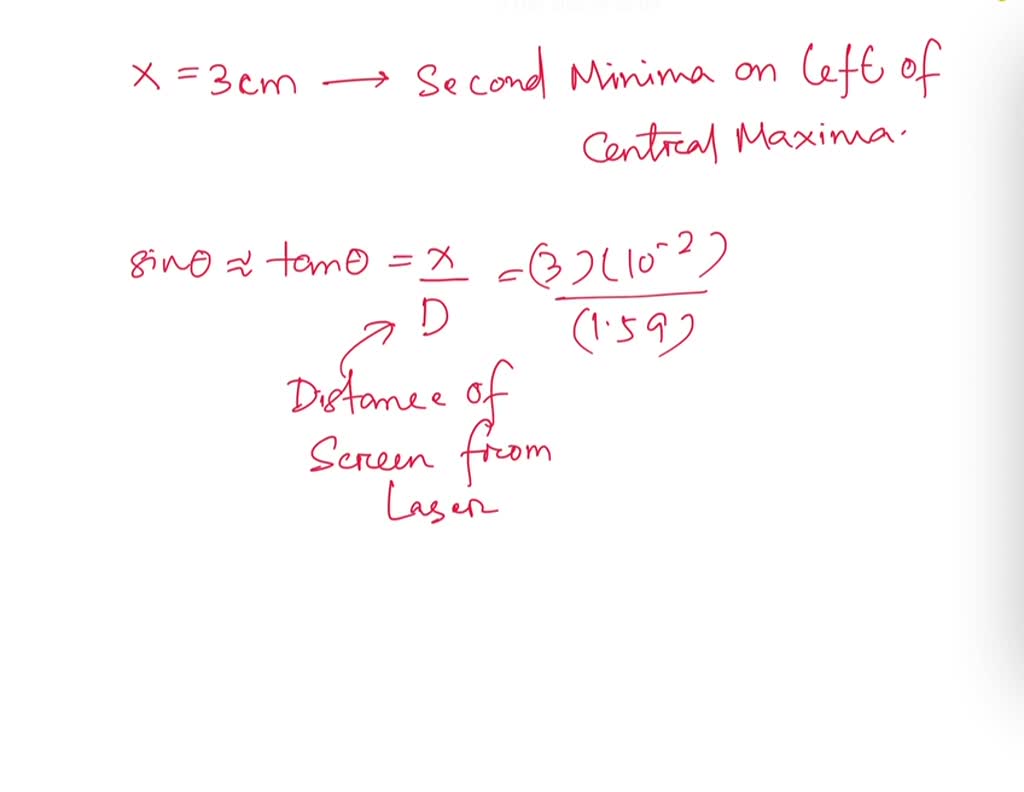 x = 3cm → Second Minima on left of
Central Maxima.
sinθ ≈ tanθ = x/D = (3)(10⁻²)/(1.59)
Distance of
Screen from
Laser